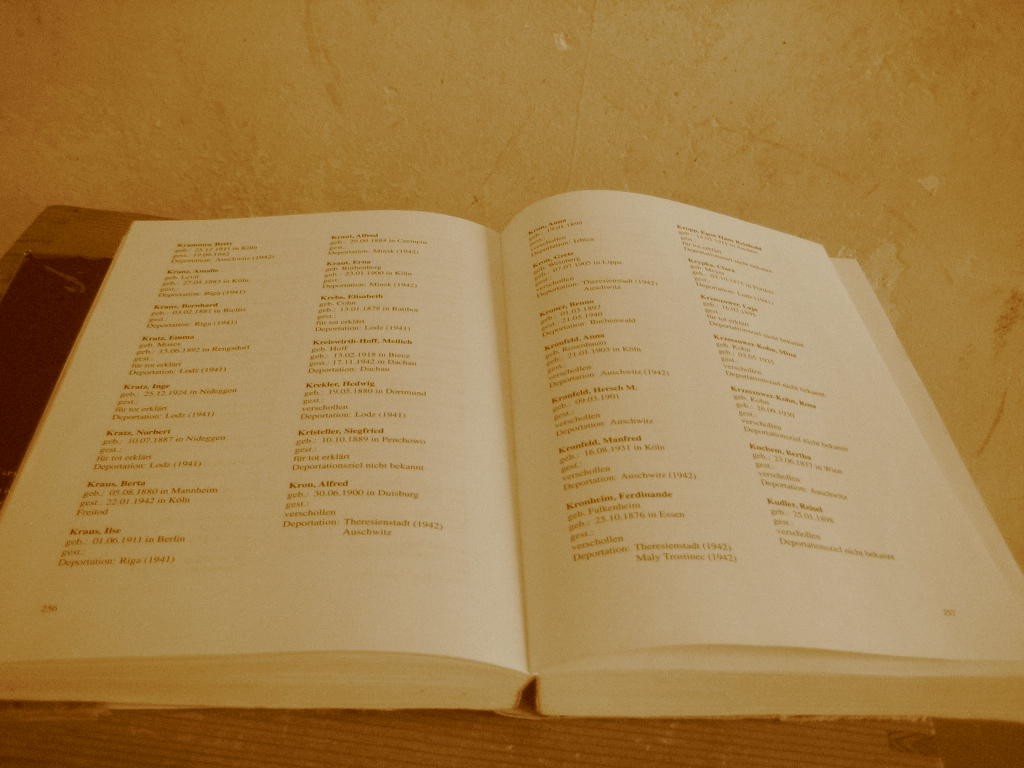 geb.: 25.12.1911 in Köln
gest.: 19.06.1942
Deportation: Auschwitz (1942)
Kranz, Amalie
geb. Levit
geb.: 27.04.1883 in Köln
gest.:
Deportation: Riga (1941)
Kranz, Bernhard
geb.: 03.02.1881 in Berlin
gest.:
Deportation: Riga (1941)
Kratz, Emma
geb. Moses
geb.: 15.06.1892 in Rengsdorf
gest.:
für tot erklärt
Deportation: Lodz (1941)
Kratz, Inge
geb.: 25.12.1924 in Nideggen
gest.:
für tot erklärt
Deportation: Lodz (1941)
Kratz, Norbert
geb.: 10.07.1887 in Nideggen
gest.:
für tot erklärt
Deportation: Lodz (1941)
Kraus, Berta
geb.: 05.08.1880 in Mannheim
gest.: 22.01.1942 in Köln
Freitod
Kraus, Ilse
geb.: 01.06.1911 in Berlin
gest.:
Deportation: Riga (1941)
256
Kraut, Alfred
geb.: 20.09.1884 in
gest.:
Deportation: Minsk (1942)
Kraut, Erna
geb. Rothenberg
geb.: 23.01.1900 in Köln
gest.:
Deportation: Minsk (1942)
Krebs, Elisabeth
geb. Cohn
geb.: 13.01.1879 in
gest.:
für tot erklärt
Deportation: Lodz (1941)
Kreiswirth-Hoff, Meilich
geb. Hoff
geb.: 13.02.1918 in Biecz
gest.: 17.11.1942 in Dachau
Deportation: Dachau
Krekler, Hedwig
geb.: 19.05.1880 in Dortmund
gest.:
verschollen
Deportation: Lodz (1941)
Kristeller, Siegfried
geb.: 10.10.1889 in Penchowo
gest.:
für tot erklärt
Deportationsziel nicht bekannt
Kron, Alfred
geb.: 30.06.1900 in Duisburg
gest.:
verschollen
Deportation: Theresienstadt (1942)
Auschwitz
Kron, Anna
gest.:
verschollen
Deportation: Izbica
Kron, Grete
geb. Weinberg
geb.: 07.07.1905 in Lippe
gest.:
verschollen
Deportation: Theresienstadt (1942)
Auschwitz
Kroner, Bruno
geb.: 01.03.1887
gest.: 21.05.1940
Deportation: Buchenwald
Kronfeld, Anna
geb. Rosenbaum
geb.: 21.01.1903 in Köln
gest.:
verschollen
Deportation: Auschwitz (1942)
Kronfeld, Hersch M.
geb.: 09.03.1901
gest.:
verschollen
Deportation: Auschwitz
Kronfeld, Manfred
geb.: 16.08.1931 in Köln
gest.:
verschollen
Deportation: Auschwitz (1942)
Kronheim, Ferdinande
geb. Falkenheim
geb.: 25.10.1876 in Essen
gest.:
verschollen
Deportation: Theresienstadt (1942)
Maly Trostinec (1942)
gest.:
für tot erklärt
Deportationsziel nicht bekannt
Krypka, Clara
geb. Meyer
gest.:
verschollen
Deportation: Lodz (1941)
gest.:
für tot erklärt
Deportationsziel nicht bekannt
geb. Kohn
gest.:
verschollen
Deportationsziel nicht bekannt
geb. Kohn
gest.:
verschollen
Deportationsziel nicht bekannt
Kuchem, Bertha
geb.: 23.06.1877 in Wien
gest.:
verschollen
Deportation: Auschwitz
Kudler, Reisel
geb.: 25.01.1898
gest.:
verschollen
Deportationsziel nicht bekannt
257